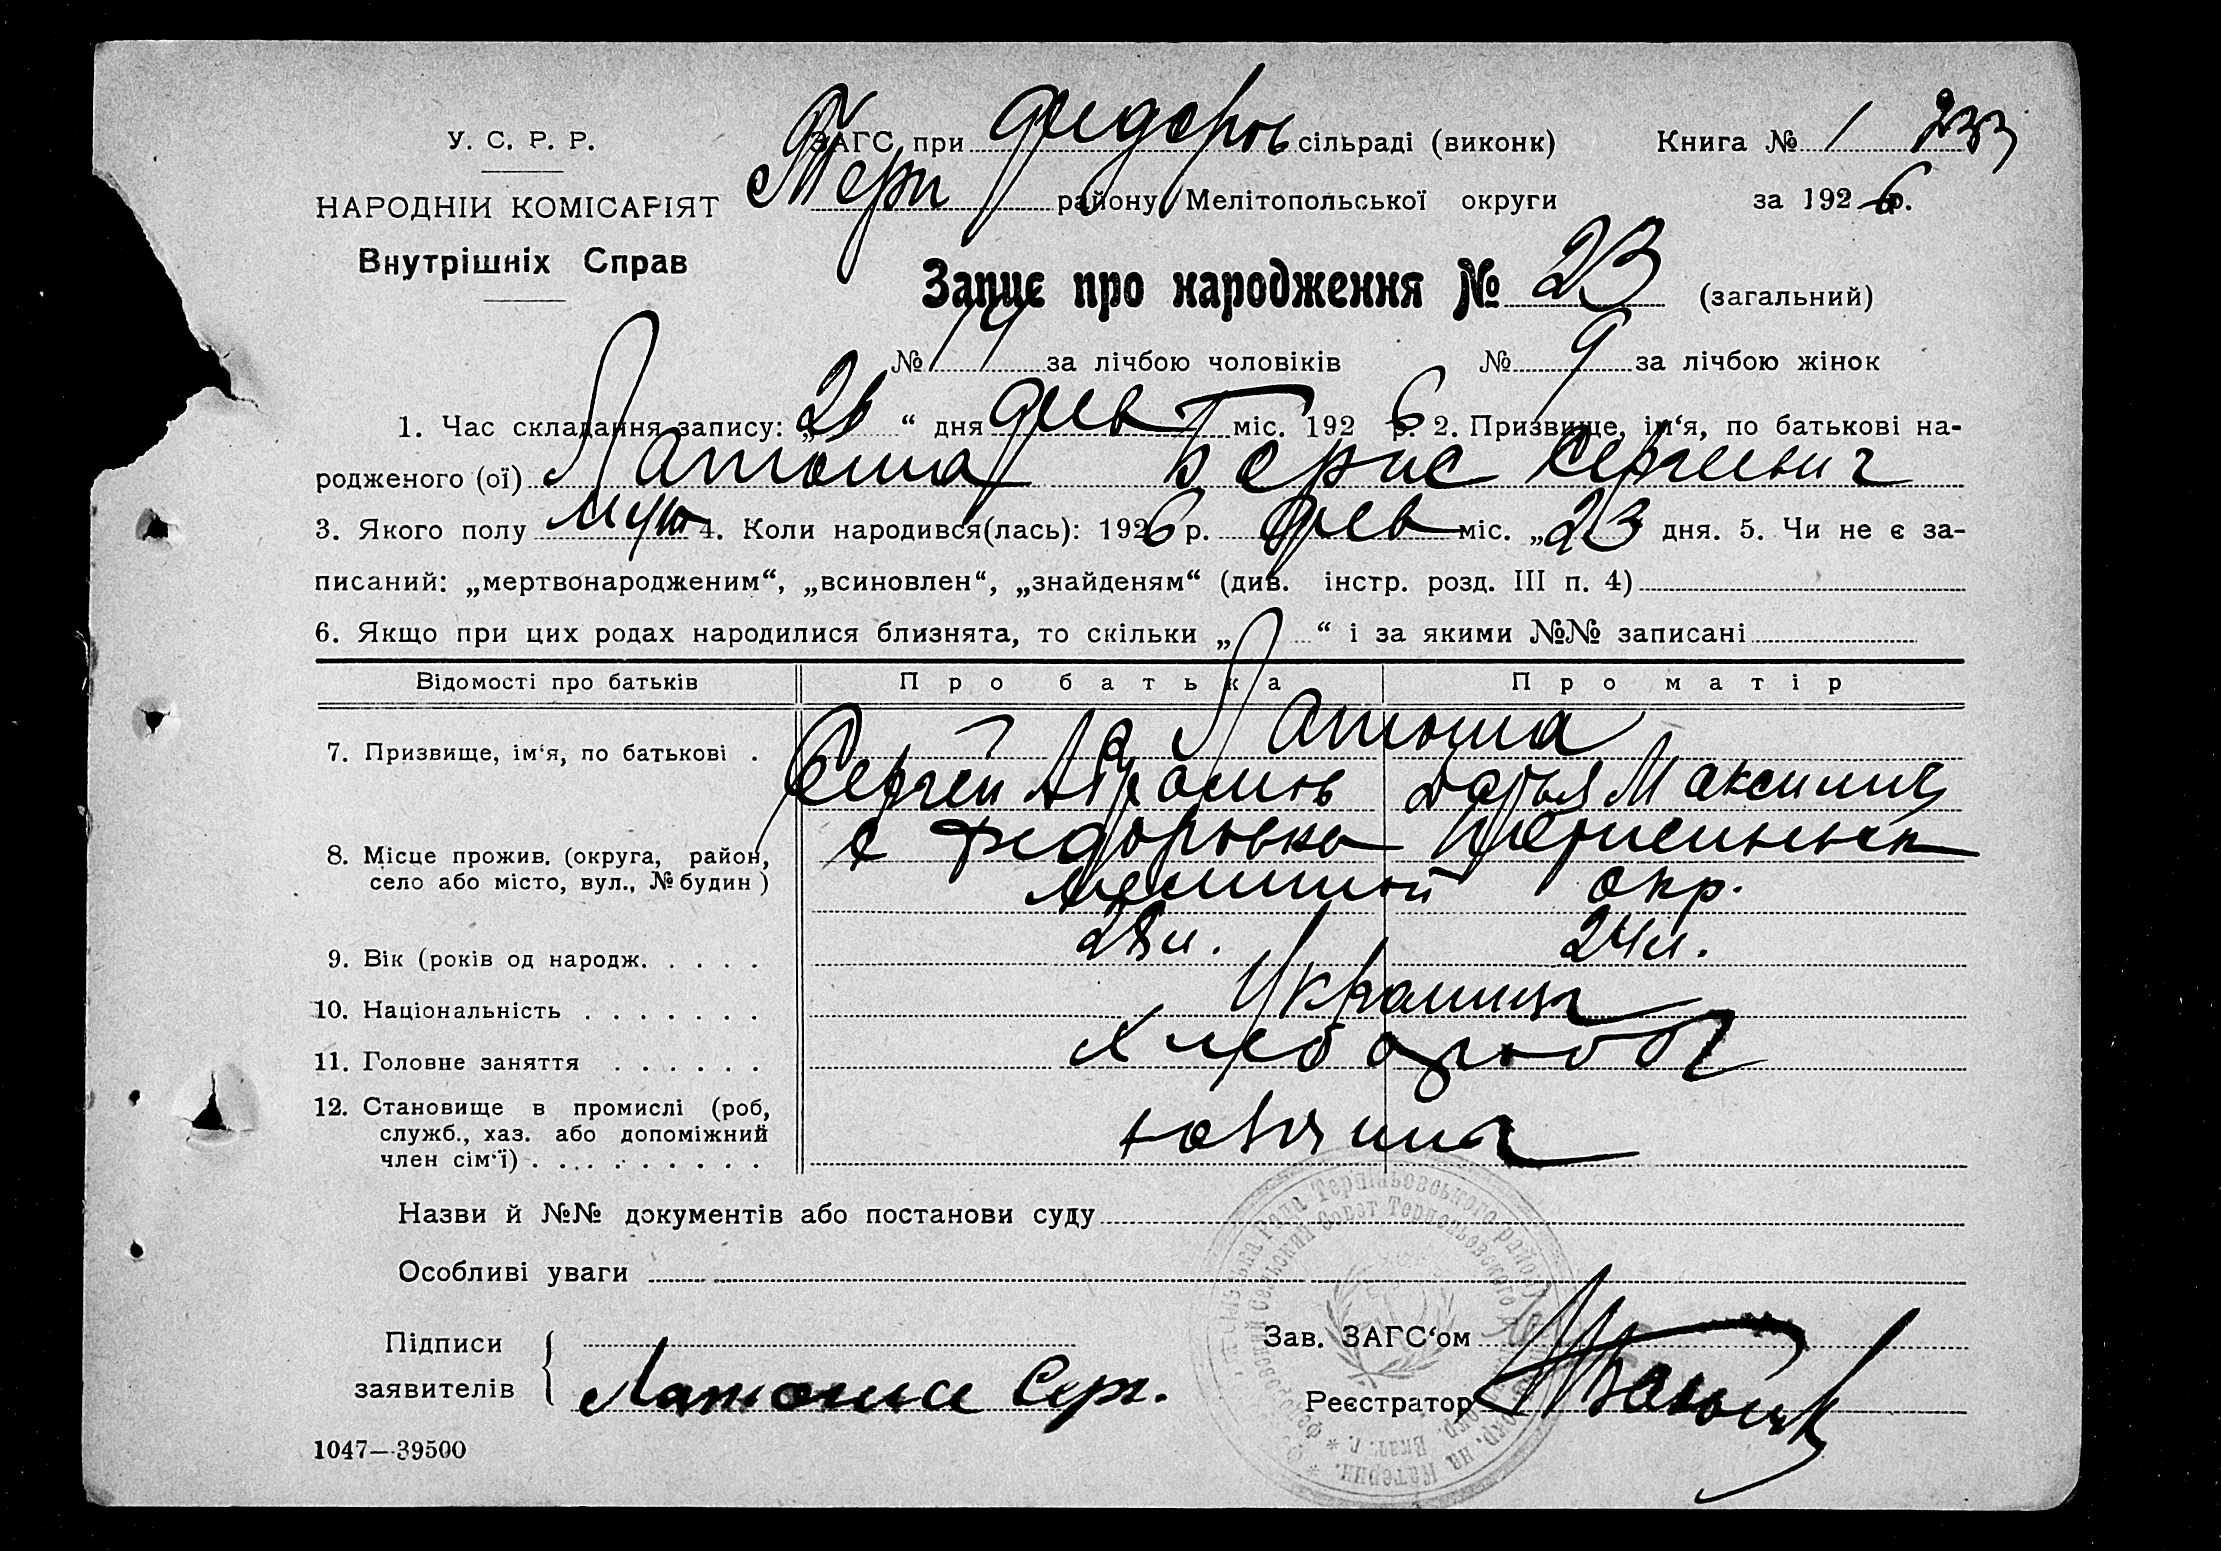 У. С. Р. Р.
НАРОДНІЙ КОМІСАРІЯТ
Внутрішніх Справ
ЗАГС при Федоров сільраді (виконк) Книга № 1 233
Терп району Мелітопольської округи за 1926 р.
Запис про народження № 23 (загальний)
№ 14 за лічбою чоловіків № 9 за лічбою жінок
1. Час складання запису: „26“ дня фев міс. 1926 р. 2. Призвище, ім‘я, по батькові на-
родженого (ої) Латюша Борис Сергеевич
3. Якого полу муж 4. Коли народився(лась): 1926 р. фев міс. „23 дня. 5. Чи не є за-
писаний: „мертвонародженим“, „всиновлен“, „знайденям“ (див. інстр. розд. III п. 4)
6. Якщо при цих родах народилися близнята, то скільки „ “ і за якими №№ записані
Відомості про батьків Про батька Про матір
7. Призвище, ім‘я, по батькові . Латюша
Сергей Абрамов Дарья Максимов
8. Місце прожив. (округа, район, с Федоровка
село або місто, вул., № будин) окр.
9. Вік (років од народж. . . . . 28 л. 24 л.
10. Національність . . . . . . . Украинцы
11. Головне заняття . . . . . . Хлебороб
12. Становище в промислі (роб,
служб., хаз. або допоміжний хозяин
член сім‘ї) . . . . . . . . . .
Назви й №№ документів або постанови суду
Особливі уваги
Підписи Зав. ЗАГС‘ом
заявителів Латюша Серг. Реєстратор
1047—39500